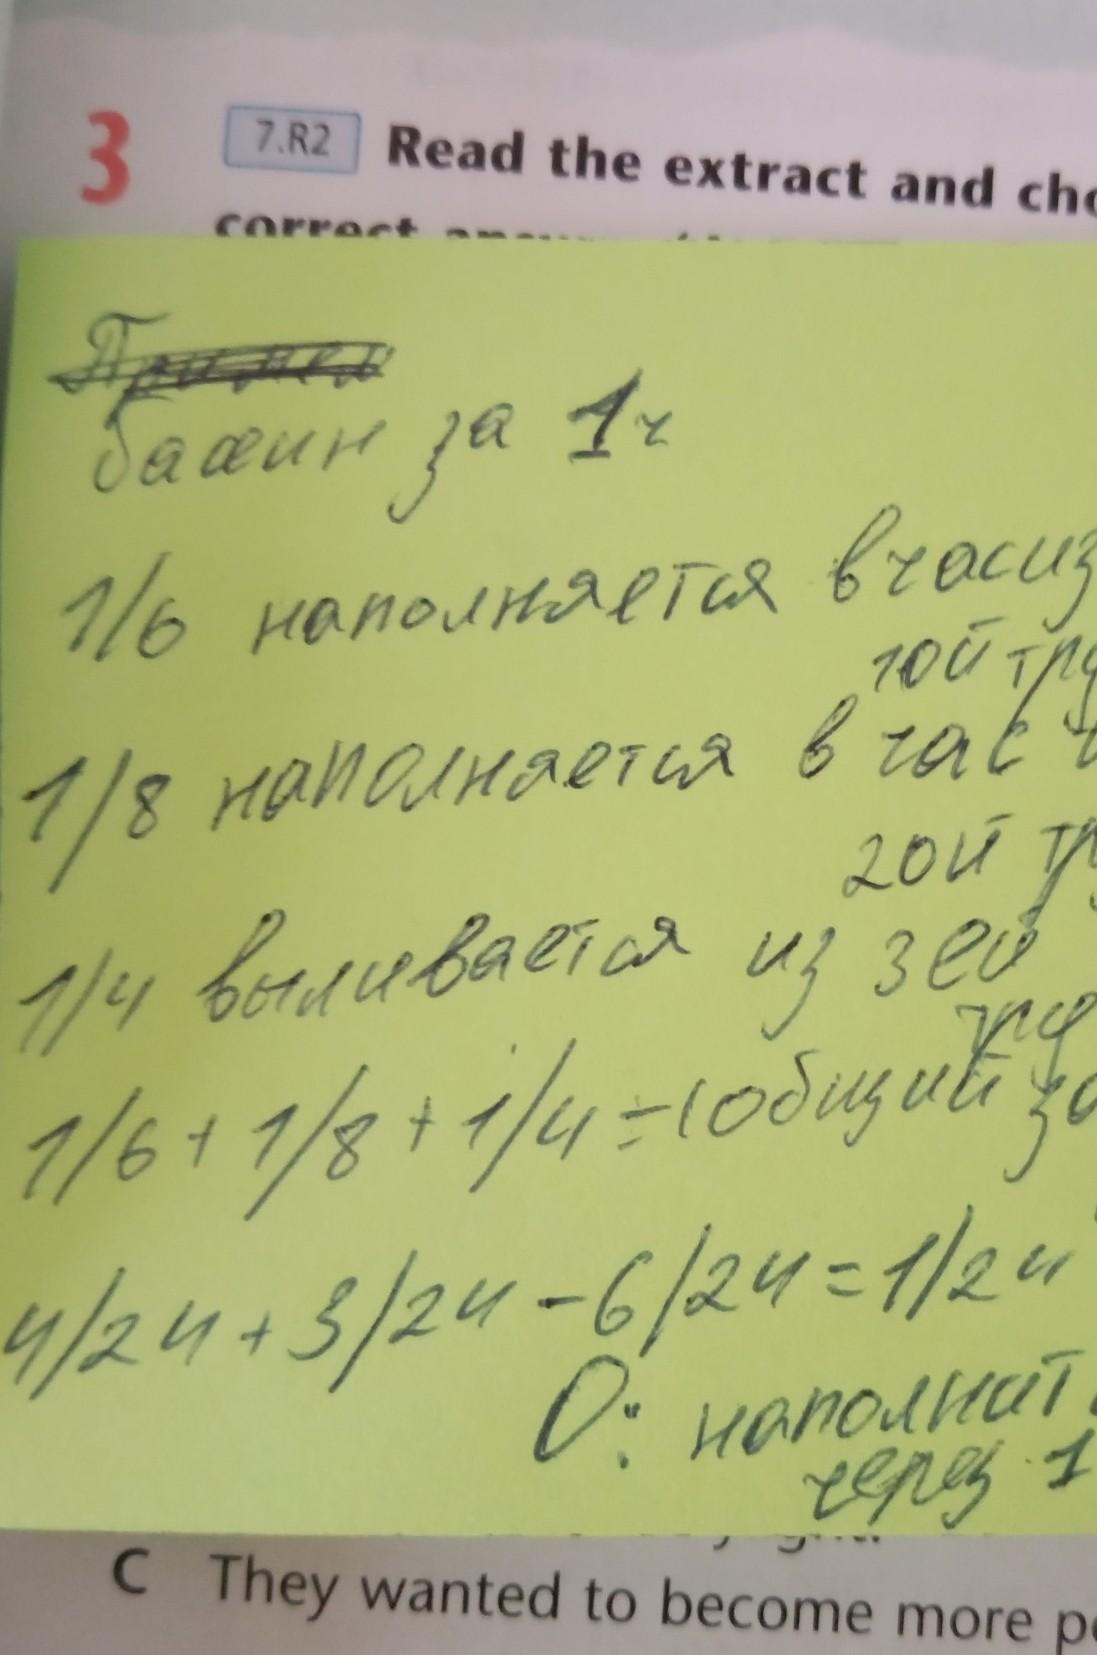 3 7.R2 Read the extract and cho
correct
басеин за 1ч
1/6 наполняется в час из
1ой тру
1/8 наполняется в час
2ой тр
1/4 выливается из 3ей
тру
1/6 + 1/8 + 1/4 = общий
4/24 + 3/24 - 6/24 = 1/24
О: наполнит
через 1
C They wanted to become more